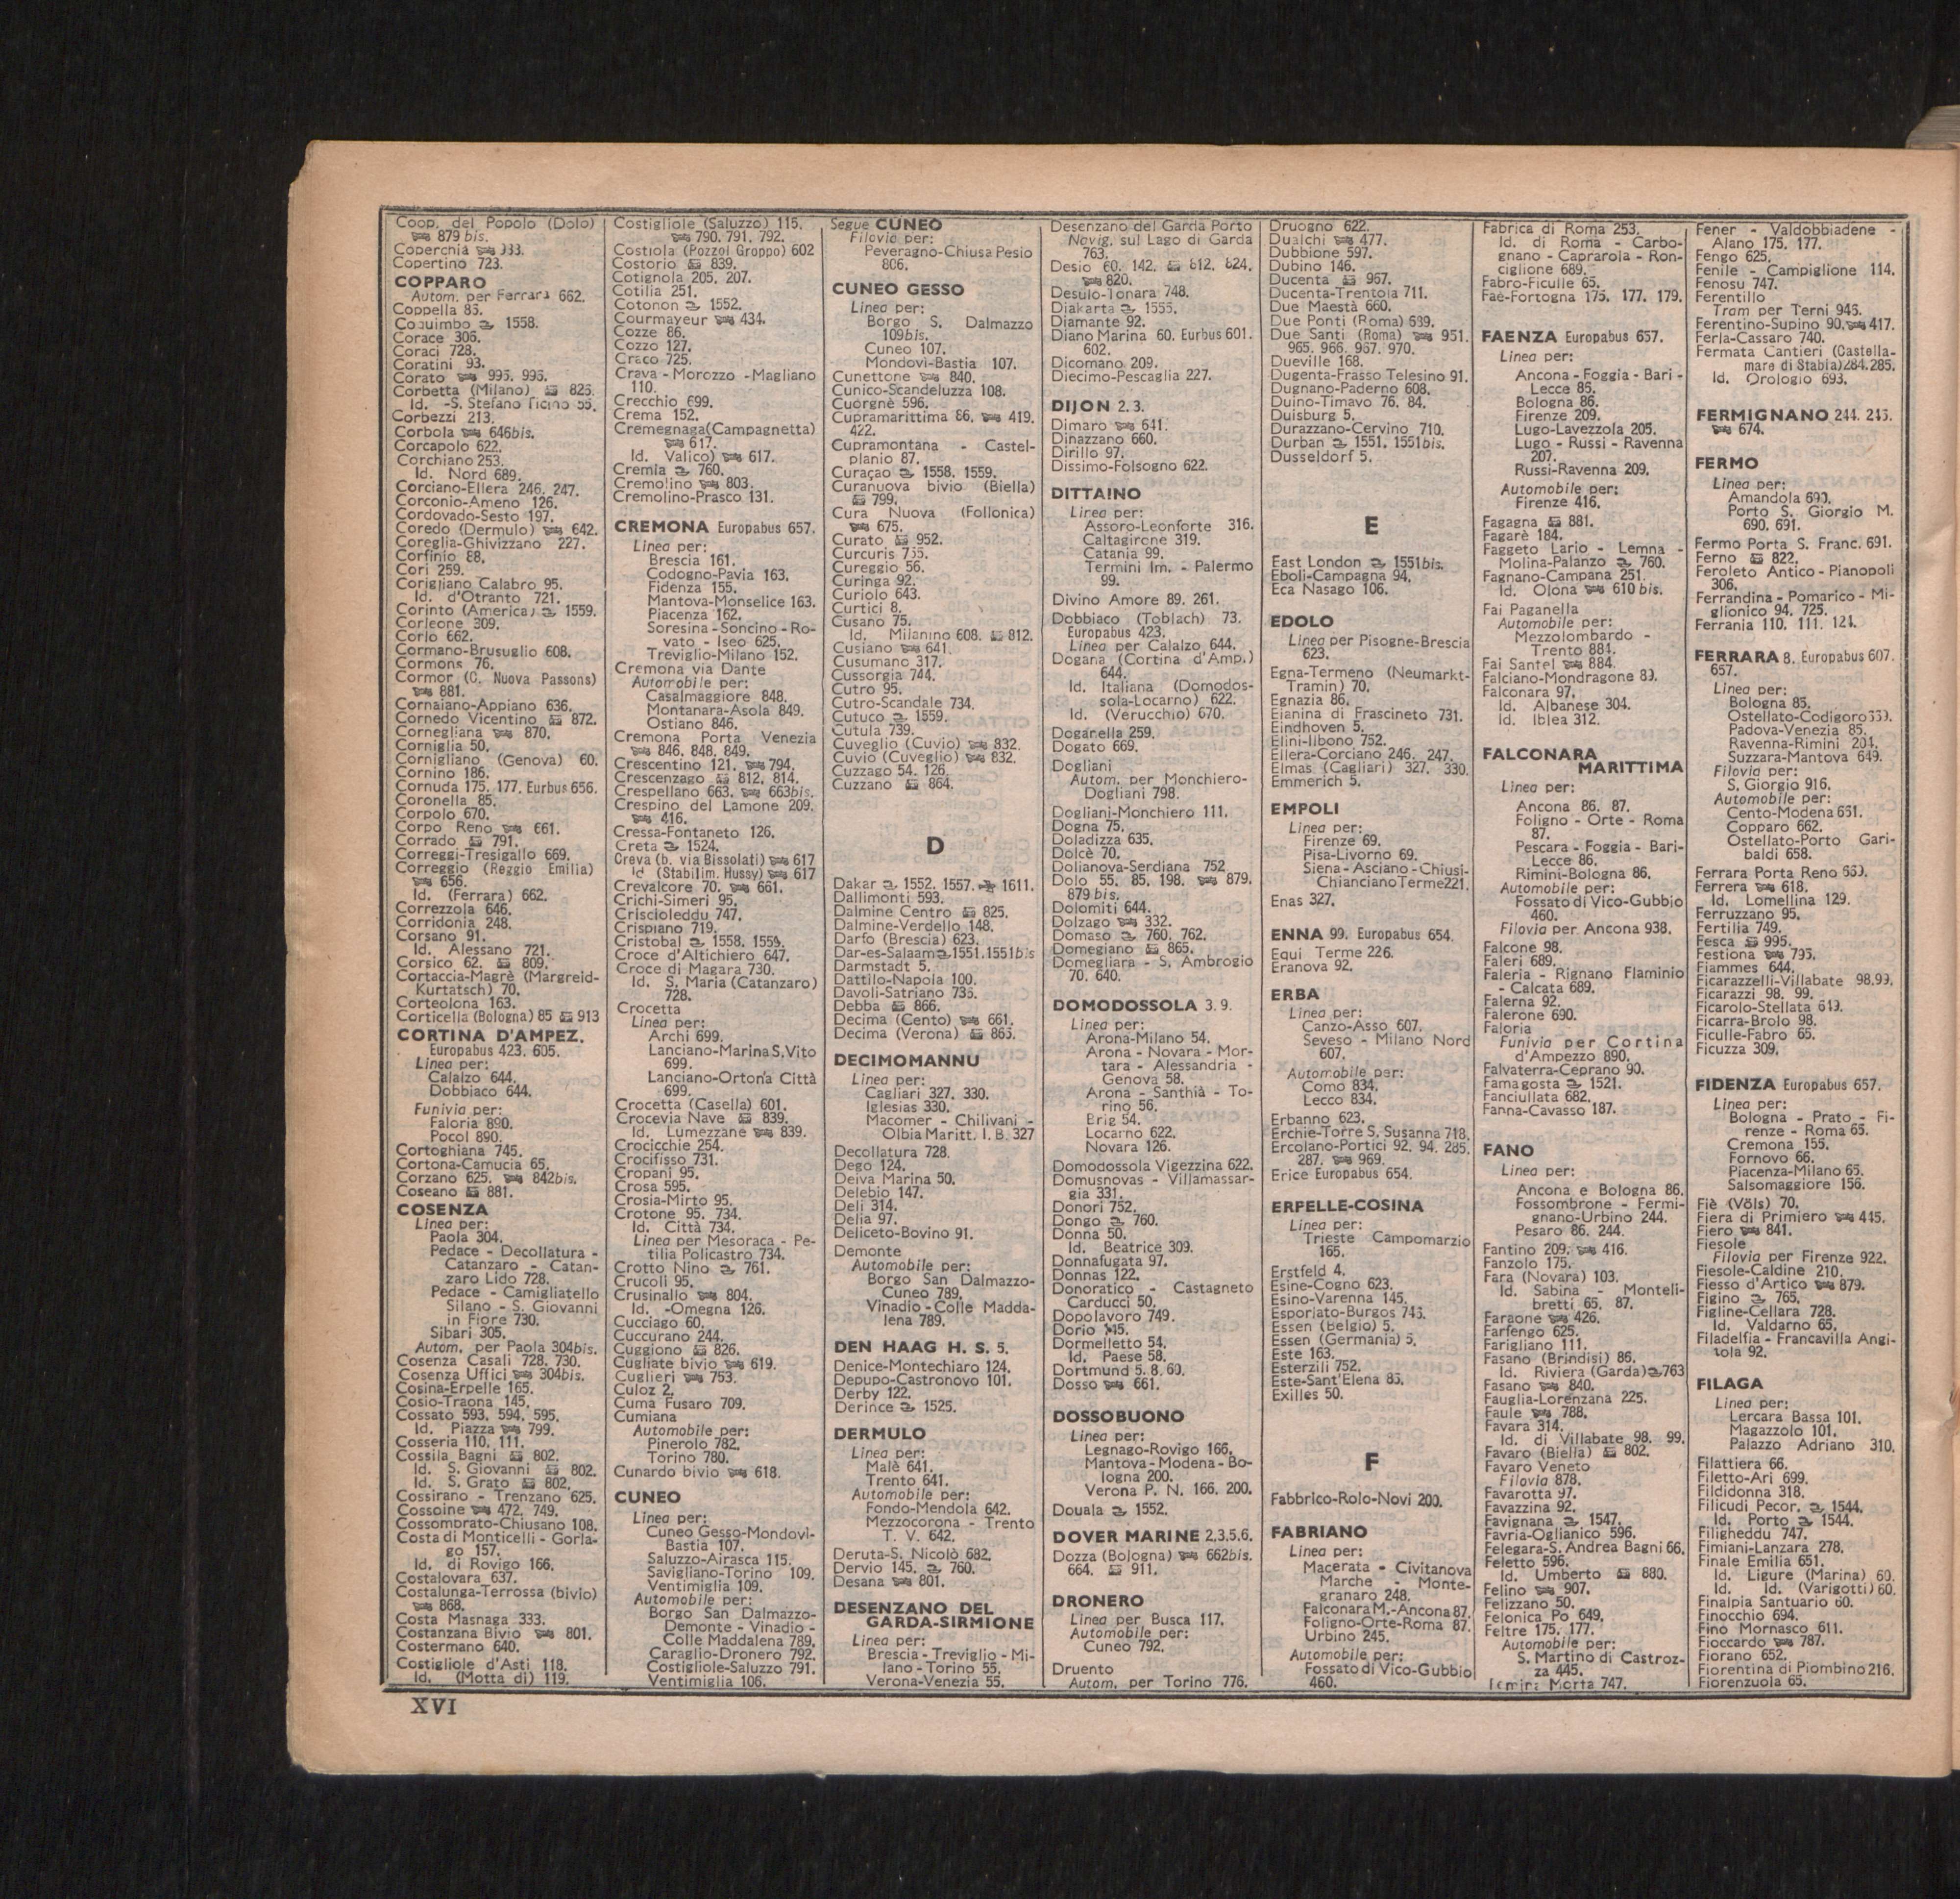 Coop. del Popolo (Dolo)
879 bis.
Coperchia 933.
Copertino 723.
COPPARO
Autom. per Ferrara 662.
Coppella 85.
Coquimbo 1558.
Corace 306.
Coraci 728.
Coratini 93.
Corato 995. 996.
Corbetta (Milano) 826.
Id. -S. Stefano Ticino 55.
Corbezzi 213.
Corbola 646bis.
Corcapolo 622.
Corchiano 253.
Id. Nord 689.
Corciano-Ellera 246. 247.
Corconio-Ameno 126.
Cordovado-Sesto 197.
Coredo (Dermulo) 642.
Coreglia-Ghivizzano 227.
Corfinio 88.
Cori 259.
Corigliano Calabro 95.
Id. d'Otranto 721.
Corinto (America) 1559.
Corleone 309.
Corlo 662.
Cormano-Brusuglio 608.
Cormons 76.
Cormor (C. Nuova Passons)
881.
Cornaiano-Appiano 636.
Cornedo Vicentino 872.
Cornegliana 870.
Corniglia 50.
Cornigliano (Genova) 60.
Cornino 186.
Cornuda 175. 177. Eurbus 656.
Coronella 85.
Corpolo 670.
Corpo Reno 661.
Corrado 791.
Correggi-Tresigallo 669.
Correggio (Reggio Emilia)
656.
Id. (Ferrara) 662.
Correzzola 646.
Corridonia 248.
Corsano 91.
Id. Alessano 721.
Corsico 62. 809.
Cortaccia-Magrè (Margreid-
Kurtatsch) 70.
Corteolona 163.
Corticella (Bologna) 85 913
CORTINA D'AMPEZ.
Europabus 423. 605.
Linea per:
Calalzo 644.
Dobbiaco 644.
Funivia per:
Faloria 890.
Pocol 890.
Cortoghiana 745.
Cortona-Camucia 65.
Corzano 625. 842bis.
Coseano 881.
COSENZA
Linea per:
Paola 304.
Pedace - Decollatura -
Catanzaro - Catan-
zaro Lido 728.
Pedace - Camigliatello
Silano - S. Giovanni
in Fiore 730.
Sibari 305.
Autom. per Paola 304bis.
Cosenza Casali 728. 730.
Cosenza Uffici 304bis.
Cosina-Erpelle 165.
Cosio-Traona 145.
Cossato 593. 594. 595.
Id. Piazza 799.
Cosseria 110. 111.
Cossila Bagni 802.
Id. S. Giovanni 802.
Id. S. Grato 802.
Cossirano - Trenzano 625.
Cossoine 472. 749.
Cossombrato-Chiusano 108.
Costa di Monticelli - Gorla-
go 157.
Id. di Rovigo 166.
Costalovara 637.
Costalunga-Terrossa (bivio)
868.
Costa Masnaga 333.
Costanzana Bivio 801.
Costermano 640.
Costigliole d'Asti 118.
Id. (Motta di) 119.
Costigliole (Saluzzo) 115.
790. 791. 792.
Costiola (Pozzol Groppo) 602
Costorio 839.
Cotignola 205. 207.
Cotilia 251.
Cotonon 1552.
Courmayeur 434.
Cozze 86.
Cozzo 127.
Craco 725.
Crava - Morozzo - Magliano
110.
Crecchio 699.
Crema 152.
Cremegnaga (Campagnetta)
617.
Id. Valico) 617.
Cremia 760.
Cremolino 803.
Cremolino-Prasco 131.
CREMONA Europabus 657.
Linea per:
Brescia 161.
Codogno-Pavia 163.
Fidenza 155.
Mantova-Monselice 163.
Piacenza 162.
Soresina - Soncino - Ro-
vato - Iseo 625.
Treviglio-Milano 152.
Cremona via Dante
Automobile per:
Casalmaggiore 848.
Montanara-Asola 849.
Ostiano 846.
Cremona Porta Venezia
846. 848. 849.
Crescentino 121. 794.
Crescenzago 812. 814.
Crespellano 663. 663bis.
Crespino del Lamone 209.
416.
Cressa-Fontaneto 126.
Creta 1524.
Creva (b. via Bissolati) 617
Id (Stabilim. Hussy) 617
Crevalcore 70. 661.
Crichi-Simeri 95.
Criscioleddu 747.
Crispiano 719.
Cristobal 1558. 1559.
Croce d'Altichiero 647.
Croce di Magara 730.
Id. S. Maria (Catanzaro)
728.
Crocetta
Linea per:
Archi 699.
Lanciano-Marina S. Vito
699.
Lanciano-Ortona Città
699.
Crocetta (Casella) 601.
Crocevia Nave 839.
Id. Lumezzane 839.
Crocicchie 254.
Crocifisso 731.
Cropani 95.
Crosa 595.
Crosia-Mirto 95.
Crotone 95. 734.
Id. Città 734.
Linea per Mesoraca - Pe-
tilia Policastro 734.
Crotto Nino 761.
Crucoli 95.
Crusinallo 804.
Id. -Omegna 126.
Cucciago 60.
Cuccurano 244.
Cuggiono 826.
Cugliate bivio 619.
Cuglieri 753.
Culoz 2.
Cuma Fusaro 709.
Cumiana
Automobile per:
Pinerolo 782.
Torino 780.
Cunardo bivio 618.
CUNEO
Linea per:
Cuneo Gesso-Mondovì-
Bastia 107.
Saluzzo-Airasca 115.
Savigliano-Torino 109.
Ventimiglia 109.
Automobile per:
Borgo San Dalmazzo-
Demonte - Vinadio -
Colle Maddalena 789.
Caraglio-Dronero 792.
Costigliole-Saluzzo 791.
Ventimiglia 106.
Segue CUNEO
Filovia per:
Peveragno-Chiusa Pesio
806.
CUNEO GESSO
Linea per:
Borgo S. Dalmazzo
109bis.
Cuneo 107.
Mondovì-Bastia 107.
Cunettone 840.
Cunico-Scandeluzza 108.
Cuorgnè 596.
Cupramarittima 86. 419.
422.
Cupramontana - Castel-
planio 87.
Curaçao 1558. 1559.
Curanuova bivio (Biella)
799.
Cura Nuova (Follonica)
675.
Curato 952.
Curcuris 755.
Cureggio 56.
Curinga 92.
Curiolo 643.
Curtici 8.
Cusano 75.
Id. Milanino 608. 812.
Cusiano 641.
Cusumano 317.
Cussorgia 744.
Cutro 95.
Cutro-Scandale 734.
Cutuco 1559.
Cutula 739.
Cuveglio (Cuvio) 832.
Cuvio (Cuveglio) 832.
Cuzzago 54. 126.
Cuzzano 864.
D
Dakar 1552. 1557. 1611.
Dallimonti 593.
Dalmine Centro 825.
Dalmine-Verdello 148.
Darfo (Brescia) 623.
Dar-es-Salaam 1551. 1551bis
Darmstadt 5.
Dattilo-Napola 100.
Davoli-Satriano 735.
Debba 866.
Decima (Cento) 661.
Decima (Verona) 865.
DECIMOMANNU
Linea per:
Cagliari 327. 330.
Iglesias 330.
Macomer - Chilivani -
Olbia Maritt. I. B. 327
Decollatura 728.
Dego 124.
Deiva Marina 50.
Delebio 147.
Deli 314.
Delia 97.
Deliceto-Bovino 91.
Demonte
Automobile per:
Borgo San Dalmazzo-
Cuneo 789.
Vinadio - Colle Madda-
lena 789.
DEN HAAG H. S. 5.
Denice-Montechiaro 124.
Depupo-Castronovo 101.
Derby 122.
Derince 1525.
DERMULO
Linea per:
Malè 641.
Trento 641.
Automobile per:
Fondo-Mendola 642.
Mezzocorona - Trento
T. V. 642.
Deruta-S. Nicolò 682.
Dervio 145. 760.
Desana 801.
DESENZANO DEL
GARDA-SIRMIONE
Linea per:
Brescia - Treviglio - Mi-
lano - Torino 55.
Verona-Venezia 55.
Desenzano del Garda Porto
Navig. sul Lago di Garda
763.
Desio 60. 142. 812. 824.
820.
Desulo-Tonara 748.
Diakarta 1555.
Diamante 92.
Diano Marina 60. Eurbus 601.
602.
Dicomano 209.
Diecimo-Pescaglia 227.
DIJON 2. 3.
Dimaro 641.
Dinazzano 660.
Dirillo 97.
Dissimo-Folsogno 622.
DITTAINO
Linea per:
Assoro-Leonforte 316.
Caltagirone 319.
Catania 99.
Termini Im. - Palermo
99.
Divino Amore 89. 261.
Dobbiaco (Toblach) 73.
Europabus 423.
Linea per Calalzo 644.
Dogana (Cortina d'Amp.)
644.
Id. Italiana (Domodos-
sola-Locarno) 622.
Id. (Verucchio) 670.
Doganella 259.
Dogato 669.
Dogliani
Autom. per Monchiero-
Dogliani 798.
Dogliani-Monchiero 111.
Dogna 75.
Doladizza 635.
Dolcè 70.
Dolianova-Serdiana 752
Dolo 55. 85. 198. 879.
879 bis.
Dolomiti 644.
Dolzago 332.
Domaso 760. 762.
Domegiano 865.
Domegliara - S. Ambrogio
70. 640.
DOMODOSSOLA 3. 9.
Linea per:
Arona-Milano 54.
Arona - Novara - Mor-
tara - Alessandria -
Genova 58.
Arona - Santhià - To-
rino 56.
Brig 54.
Locarno 622.
Novara 126.
Domodossola Vigezzina 622.
Domusnovas - Villamassar-
gia 331.
Donori 752.
Dongo 760.
Donna 50.
Id. Beatrice 309.
Donnafugata 97.
Donnas 122.
Donoratico - Castagneto
Carducci 50.
Dopolavoro 749.
Dorio 145.
Dormelletto 54.
Id. Paese 58.
Dortmund 5. 8. 60.
Dosso 661.
DOSSOBUONO
Linea per:
Legnago-Rovigo 166.
Mantova - Modena - Bo-
logna 200.
Verona P. N. 166. 200.
Douala 1552.
DOVER MARINE 2.3.5.6.
Dozza (Bologna) 662bis.
664. 911.
DRONERO
Linea per Busca 117.
Automobile per:
Cuneo 792.
Druento
Autom. per Torino 776.
Druogno 622.
Dualchi 477.
Dubbione 597.
Dubino 146.
Ducenta 967.
Ducenta-Trentola 711.
Due Maestà 660.
Due Ponti (Roma) 689.
Due Santi (Roma) 951.
965. 966. 967. 970.
Dueville 168.
Dugenta-Frasso Telesino 91.
Dugnano-Paderno 608.
Duino-Timavo 76. 84.
Duisburg 5.
Durazzano-Cervino 710.
Durban 1551. 1551bis.
Dusseldorf 5.
E
East London 1551bis.
Eboli-Campagna 94.
Eca Nasago 106.
EDOLO
Linea per Pisogne-Brescia
623.
Egna-Termeno (Neumarkt-
Tramin) 70.
Egnazia 86.
Eianina di Frascineto 731.
Eindhoven 5.
Elini-Ilbono 752.
Ellera-Corciano 246. 247.
Elmas (Cagliari) 327. 330.
Emmerich 5.
EMPOLI
Linea per:
Firenze 69.
Pisa-Livorno 69.
Siena - Asciano - Chiusi-
Chianciano Terme 221.
Enas 327.
ENNA 99. Europabus 654.
Equi Terme 226.
Eranova 92.
ERBA
Linea per:
Canzo-Asso 607.
Seveso - Milano Nord
607.
Automobile per:
Como 834.
Lecco 834.
Erbanno 623.
Erchie-Torre S. Susanna 718.
Ercolano-Portici 92. 94. 285.
287. 969.
Erice Europabus 654.
ERPELLE-COSINA
Linea per:
Trieste Campomarzio
165.
Erstfeld 4.
Esine-Cogno 623.
Esino-Varenna 145.
Esporlato-Burgos 746.
Essen (belgio) 5.
Essen (Germania) 5.
Este 163.
Esterzili 752.
Este-Sant'Elena 85.
Exilles 50.
F
Fabbrico-Rolo-Novi 200.
FABRIANO
Linea per:
Macerata - Civitanova
Marche - Monte-
granaro 248.
Falconara M.-Ancona 87.
Foligno-Orte-Roma 87.
Urbino 245.
Automobile per:
Fossato di Vico-Gubbio
460.
Fabrica di Roma 253.
Id. di Roma - Carbo-
gnano - Caprarola - Ron-
ciglione 689.
Fabro-Ficulle 65.
Faè-Fortogna 175. 177. 179.
FAENZA Europabus 657.
Linea per:
Ancona - Foggia - Bari -
Lecce 86.
Bologna 86.
Firenze 209.
Lugo-Lavezzola 205.
Lugo - Russi - Ravenna
207.
Russi-Ravenna 209.
Automobile per:
Firenze 416.
Fagagna 881.
Fagarè 184.
Faggeto Lario - Lemna -
Molina-Palanzo 760.
Fagnano-Campana 251.
Id. Olona 610 bis.
Fai Paganella
Automobile per:
Mezzolombardo -
Trento 884.
Fai Santel 884.
Falciano-Mondragone 89.
Falconara 97.
Id. Albanese 304.
Id. Iblea 312.
FALCONARA
MARITTIMA
Linea per:
Ancona 86. 87.
Foligno - Orte - Roma
87.
Pescara - Foggia - Bari-
Lecce 86.
Rimini-Bologna 86.
Automobile per:
Fossato di Vico-Gubbio
460.
Filovia per Ancona 938.
Falcone 98.
Faleri 689.
Faleria - Rignano Flaminio
- Calcata 689.
Falerna 92.
Falerone 690.
Faloria
Funivia per Cortina
d'Ampezzo 890.
Falvaterra-Ceprano 90.
Famagosta 1521.
Fanciullata 682.
Fanna-Cavasso 187.
FANO
Linea per:
Ancona e Bologna 86.
Fossombrone - Fermi-
gnano-Urbino 244.
Pesaro 86. 244.
Fantino 209. 416.
Fanzolo 175.
Fara (Novara) 103.
Id. Sabina - Monteli-
bretti 65. 87.
Faraone 426.
Farfengo 625.
Farigliano 111.
Fasano (Brindisi) 86.
Id. Riviera (Garda) 763
Fasano 840.
Fauglia-Lorenzana 225.
Faule 788.
Favara 314.
Id. di Villabate 98. 99.
Favaro (Biella) 802.
Favaro Veneto
Filovia 878.
Favarotta 97.
Favazzina 92.
Favignana 1547.
Favria-Oglianico 596.
Felegara-S. Andrea Bagni 66.
Feletto 596.
Id. Umberto 880.
Felino 907.
Felizzano 50.
Felonica Po 649.
Feltre 175. 177.
Automobile per:
S. Martino di Castroz-
za 445.
Femina Morta 747.
Fener - Valdobbiadene -
Alano 175. 177.
Fengo 625.
Fenile - Campiglione 114.
Fenosu 747.
Ferentillo
Tram per Terni 946.
Ferentino-Supino 90. 417.
Ferla-Cassaro 740.
Fermata Cantieri (Castella-
mare di Stabia) 284. 285.
Id. Orologio 693.
FERMIGNANO 244. 245.
674.
FERMO
Linea per:
Amandola 690.
Porto S. Giorgio M.
690. 691.
Fermo Porta S. Franc. 691.
Ferno 822.
Feroleto Antico - Pianopoli
306.
Ferrandina - Pomarico - Mi-
glionico 94. 725.
Ferrania 110. 111. 124.
FERRARA 8. Europabus 607.
657.
Linea per:
Bologna 85.
Ostellato-Codigoro 669.
Padova-Venezia 85.
Ravenna-Rimini 204.
Suzzara-Mantova 649.
Filovia per:
S. Giorgio 916.
Automobile per:
Cento-Modena 661.
Copparo 662.
Ostellato-Porto Gari-
baldi 658.
Ferrara Porta Reno 669.
Ferrera 618.
Id. Lomellina 129.
Ferruzzano 95.
Fertilia 749.
Fesca 995.
Festiona 795.
Fiammes 644.
Ficarazzelli-Villabate 98.99.
Ficarazzi 98. 99.
Ficarolo-Stellata 649.
Ficarra-Brolo 98.
Ficulle-Fabro 65.
Ficuzza 309.
FIDENZA Europabus 657.
Linea per:
Bologna - Prato - Fi-
renze - Roma 65.
Cremona 155.
Fornovo 66.
Piacenza-Milano 65.
Salsomaggiore 156.
Fiè (Völs) 70.
Fiera di Primiero 445.
Fiero 841.
Fiesole
Filovia per Firenze 922.
Fiesole-Caldine 210.
Fiesso d'Artico 879.
Figino 765.
Figline-Cellara 728.
Id. Valdarno 65.
Filadelfia - Francavilla Angi-
tola 92.
FILAGA
Linea per:
Lercara Bassa 101.
Magazzolo 101.
Palazzo Adriano 310.
Filattiera 66.
Filetto-Ari 699.
Fildidonna 318.
Filicudi Pecor. 1544.
Id. Porto 1544.
Filigheddu 747.
Fimiani-Lanzara 278.
Finale Emilia 651.
Id. Ligure (Marina) 60.
Id. Id. (Varigotti) 60.
Finalpia Santuario 60.
Finocchio 694.
Fino Mornasco 611.
Fioccardo 787.
Fiorano 652.
Fiorentina di Piombino 216.
Fiorenzuola 65.
XVI